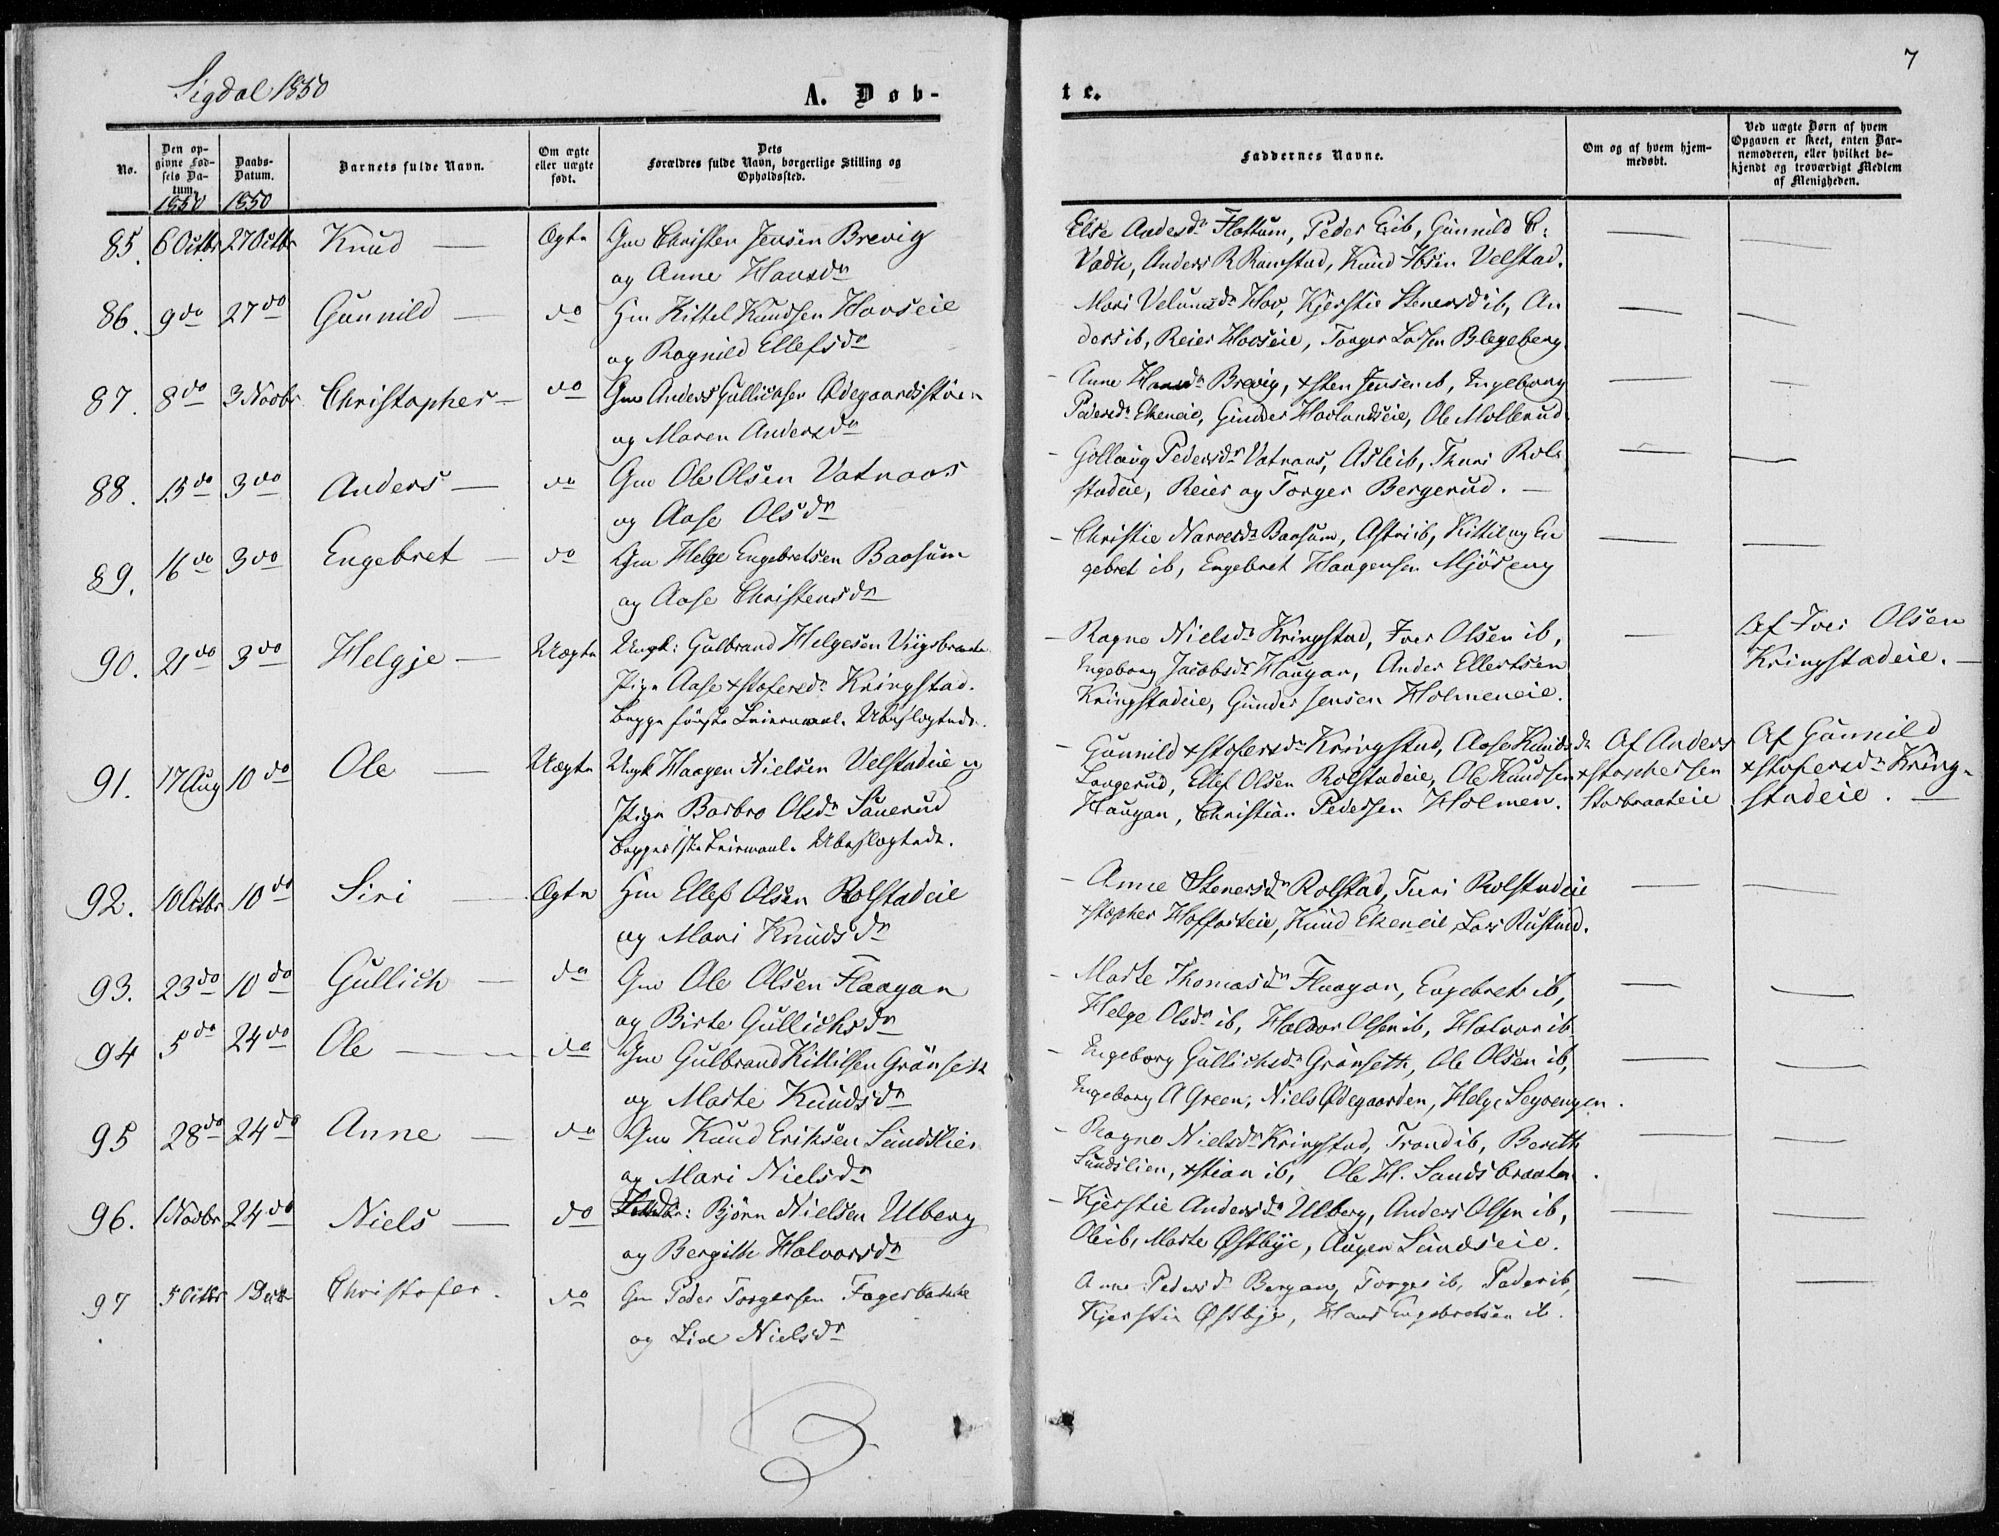 Sigdal 1850
A. Døb-
te.
7
No.
Den opgivne Fødsels Datum.
1850
Daabs-Datum.
1850
Barnets fulde Navn.
Om ægte eller uægte født.
Dets Forældres fulde Navn, borgerlige Stilling og Opholdssted.
Faddernes Navne.
Om og af hvem hjemmedøbt.
Ved uægte Børn af hvem Opgaven er skeet, enten Barnemoderen, eller hvilket bekjendt og troværdigt Medlem af Menigheden.
85. 6 Octbr 27 Octbr Knud — Ægte Gm Christen Jensen Brevig
og Anne Hansdr
Else Andersdr Flattum, Peder Eib, Gunnild
Anders R Ramstad, Knud Velstad.
86. 9 do 27 do Gunnild — do Hm Kittel Knudsen Hovseie
og Ragnild Ellefsdr
Mari Hov, Kjerstie Stenersdr ib, An
ders ib, Reier Hovseie, Torger Larsen Blegeberg
87. 8 do 3 Novbr Christopher — do Gm Anders Gullichsen Ødegaardsstuen
og Maren Andersdr
- Anne Hansdr Brevig, Xsten Jensen ib, Ingeborg
Pedersdr Ekeneie, Gunder Hovlandseie, Ole Mollerud
88. 15 do 3 do Anders — do Gm Ole Olsen Vatnaas
og Aase Olsdr
- Gollaug Pedersdr Vatnaas, Asle ib, Thuri Rol
stadeie, Reier og Torger Bergerud. —
89. 16 do 3 do Engebret — do Gm Helge Engebretsen Baasum
og Aase Christensdr
- Christie Narvesdr Baasum, Astri ib, Kittil og En
gebret ib, Engebret Haagensen Mjøseng
90. 21 do 3 do Helgje — Uægte Ungk: Gulbrand Helgesen Viigsbraate
Pige Aase Xstofersdr Kringstad.
begge første Leiermaal. Ubeslægtede.
- Ragne Nielsdr Kringstad, Iver Olsen ib,
Ingeborg Jacobsdr Haugan, Ander Ellertsen
Kringstadeie, Gunder Jensen Holmeneie.
Af Iver Olsen
Kringstadeie. —
91. 17 Aug 10 do Ole — Uægte Ungk Haagen Nielsen Velstadeie og
Pige Barbro Olsdr Sanerud
begges 1ste Leiermaal. Ubeslægtede.
- Gunnild Xstofersdr Kringstad, Aase Knudsdr
Langerud, Ellef Olsen Rolstadeie, Ole Knudsen
Haugan, Christian Pedersen Holmen.
Af Anders
Xstophersen
Storbraateie
Af Gunnild
Xstofersdr Kring-
stadeie. —
92. 10 Octbr 10 do Siri — Ægte Hm Ellef Olsen Rolstadeie
og Mari Knudsdr
- Anne Stenersdr Rolstad, Turi Rolstadeie
Xstopher Hoffarteie, Knud Ekeneie, Lars Rustand.
93. 23 do 10 do Gullich — do Gm Ole Olsen Flaagan
og Birte Gullichsdr
- Marte Thomasdr Flaagan, Engebret ib,
Helge Olsdr ib, Halvor Olsen ib, Halvor ib
94 5 do 24 do Ole — do Gm Gulbrand Kittilsen Grønseth
og Marte Knudsdr
- Ingeborg Gullichsdr Grønseth, Ole Olsen ib,
Ingeborg A Green, Niels Ødegaarden, Helge
95 28 do 24 do Anne — do Gm Knud Eriksen Sundslien
og Mari Nielsdr
- Ragne Nielsdr Kringstad, Trond ib, Berith
Sundslien, Xstian ib, Ole H. Sandsbraaten.
96. 1 Novbr 24 do Niels — do Bjørn Nielsen Ulberg
og Bergitte Halvorsdr
- Kjerstie Andersdr Ulberg, Anders Olsen ib,
Ole ib, Marte Østbye, Augen Sundseie.
97 5 Octbr 1 Dec Christofer. do Gm Peder Torgersen Fagerbakke
og Lise Nielsdr
Anne Pedersdr Bergan, Torger ib, Peder ib,
Kjerstie Østbye, Hans Engebretsen ib.